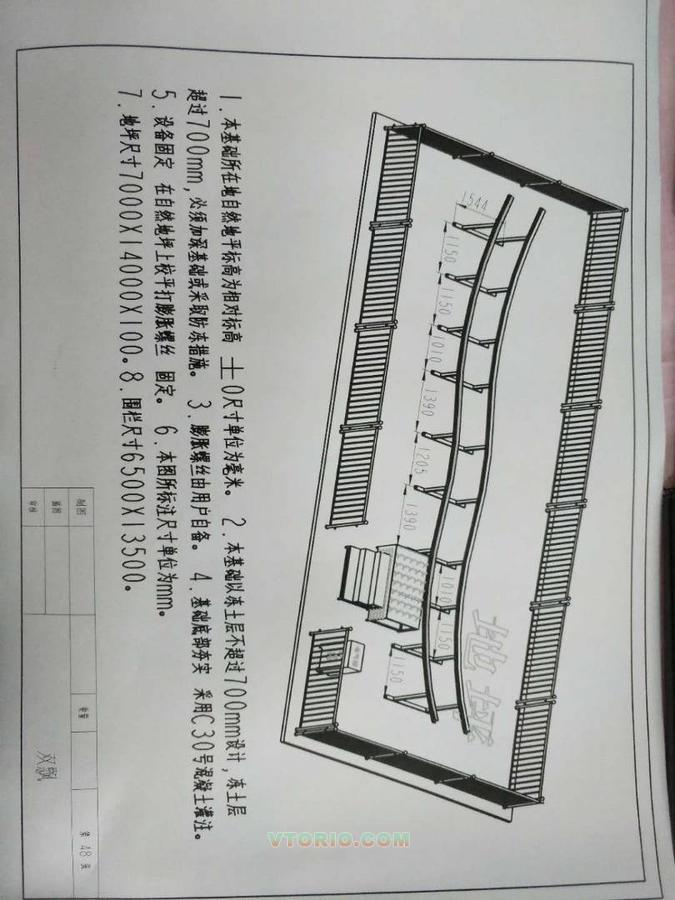 1544
1150
1150
1010
1390
1205
1390
1010
1150
1150
地坪
1．本基础所在地自然地平标高为相对标高 土0尺寸单位为毫米。 2．本基础以冻土层不超过700mm设计，冻土层
超过700mm，必须加深基础或采取防冻措施。 3．膨胀螺丝由用户自备。 4．基础底部夯实 采用C30号混凝土灌注。
5．设备固定 在自然地坪上校平打膨胀螺丝 固定。 6．本图所标注尺寸单位为mm。
7．地坪尺寸7000X14000X100。8．围栏尺寸6500X13500。
制图
描图
审核
数量
双飘
第 48 张
VTORIO.COM